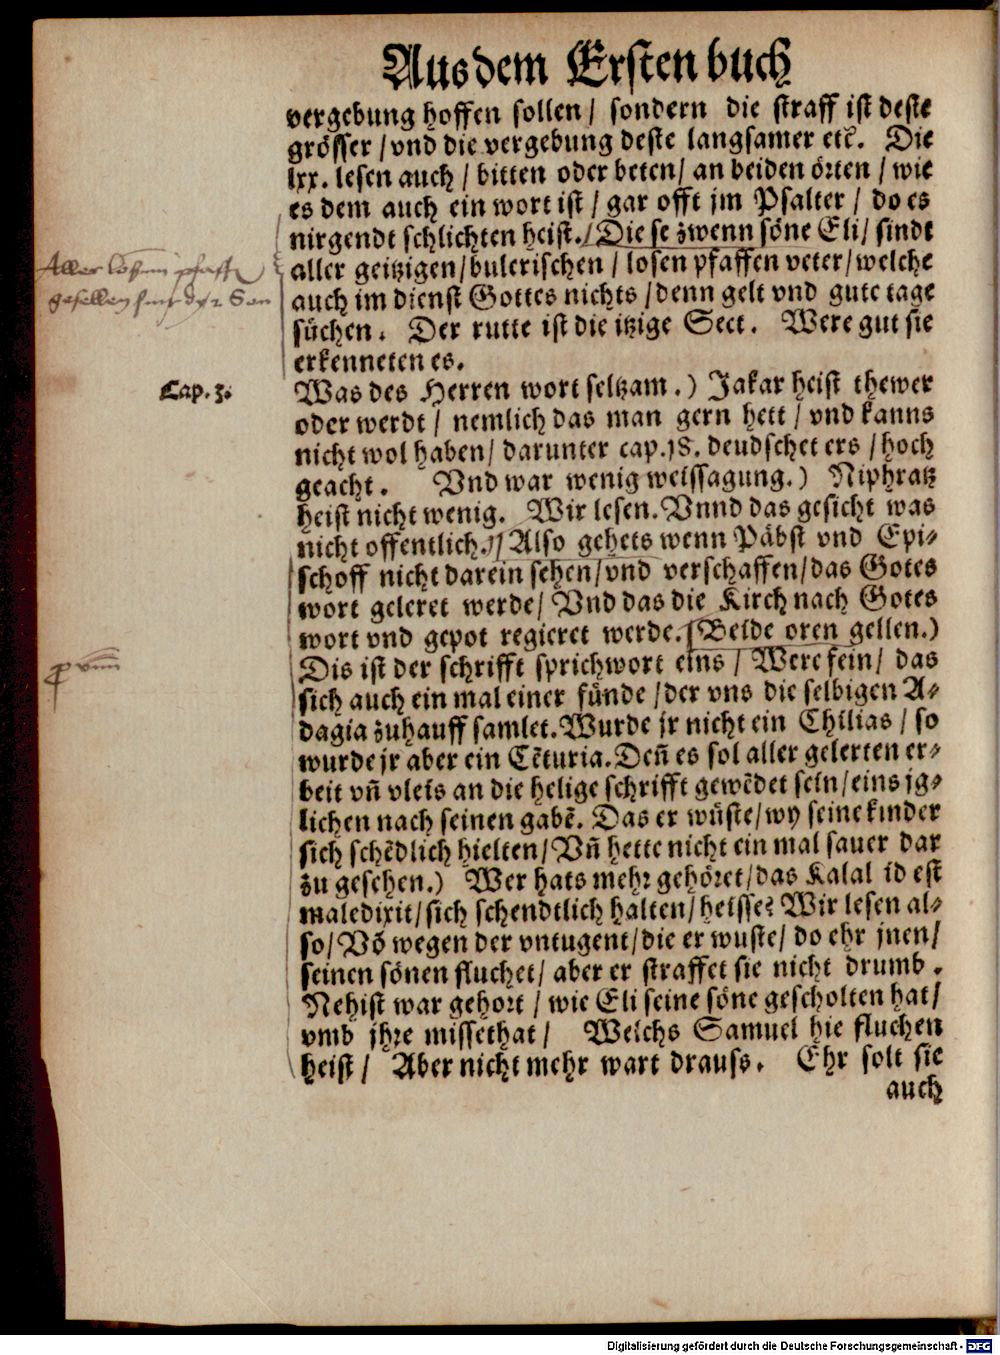 Aus dem Ersten buch
vergebung hoffen sollen / sondern die straff ist deste
grösser / vnd die vergebung deste langsamer etc̃. Die
lxx. lesen auch / bitten oder beten / an beiden örten / wie
es dem auch ein wort ist / gar offt jm Psalter / do es
nirgendt schlichten heist. / Die se zwenn söne Eli / sindt
aller geitzigen / bulerischen / losen pfaffen veter / welche
auch im dienst Gottes nichts / denn gelt vnd gute tage
süchen. Der rutte ist die itzige Sect. Were gut sie
erkenneten es.
Cap. 3.
Was des Herren wort seltzam.) Jakar heist thewer
oder werdt / nemlich das man gern hett / vnd kanns
nicht wol haben / darunter cap. 18. deudschet ers / hoch
geacht. Vnd war wenig weissagung.) Niphratz
heist nicht wenig. Wir lesen. Vnnd das gesicht was
nicht offentlich. // Also gehets wenn Päbst vnd Epi⸗
schoff nicht darein sehen / vnd verschaffen / das Gotes
wort geleret werde / Vnd das die Kirch nach Gotes
wort vnd gepot regieret werde. (Beide oren gellen.)
Dis ist der schrifft sprichwort eins / Were fein / das
sich auch ein mal einer fünde / der vns die selbigen A⸗
dagia zuhauff samlet. Wurde jr nicht ein Chilias / so
wurde jr aber ein Cẽturia. Deñ es sol aller gelerten er⸗
beit vñ vleis an die helige schrifft gewẽdet sein / eins jg⸗
lichen nach seinen gabẽ. Das er wüste / wy seine kinder
sich schẽdlich hielten / Vñ hette nicht ein mal sauer dar
zu gesehen.) Wer hats mehr gehöret / das Kalal id est
maledixit / sich schendtlich halten / heisse? Wir lesen al⸗
so / Võ wegen der vntugent / die er wuste / do ehr jnen /
seinen sönen fluchet / aber er straffet sie nicht drumb.
Nehist war gehort / wie Eli seine söne gescholten hat /
vmb jhre missethat / Welchs Samuel hie fluchen
heist / Aber nicht mehr wart drauss. Ehr solt sie
auch
Digitalisierung gefördert durch die Deutsche Forschungsgemeinschaft - DFG